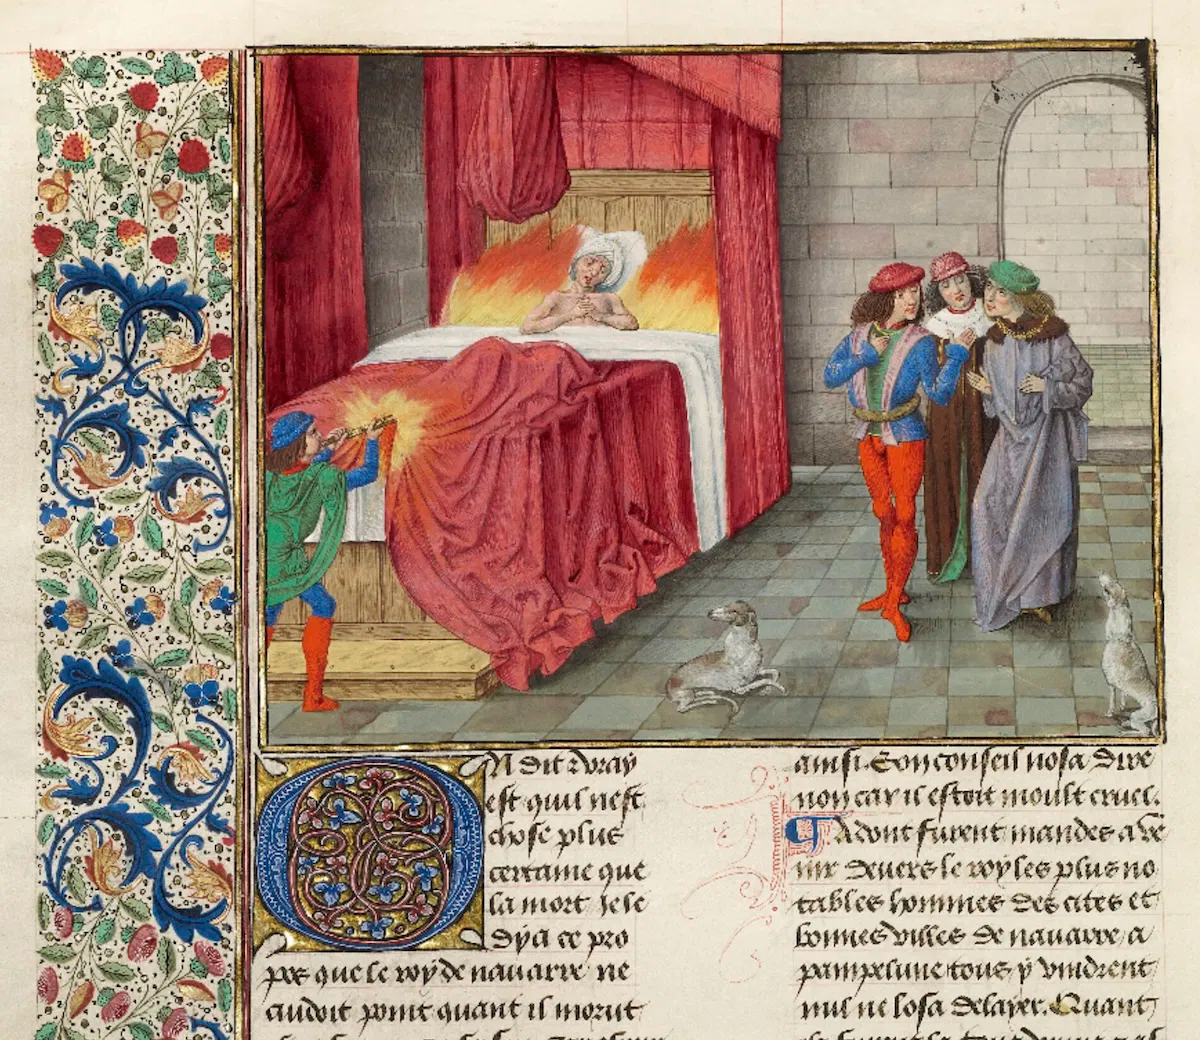 On dit & vray
est quil nest
chose plus
certaine que
la mort Je le
dy a ce pro
pos que le roy de nauarre ne
cuidoit point quant il morut
ainsi. Son conseil nosa dire
non car il estoit moult cruel.
Adont furent mandes a ve
nir deuers le roy les plus no
tables hommes des cites et
bonnes villes de nauarre a
pampelune tous y vindrent
nul ne losa delaier. Quant